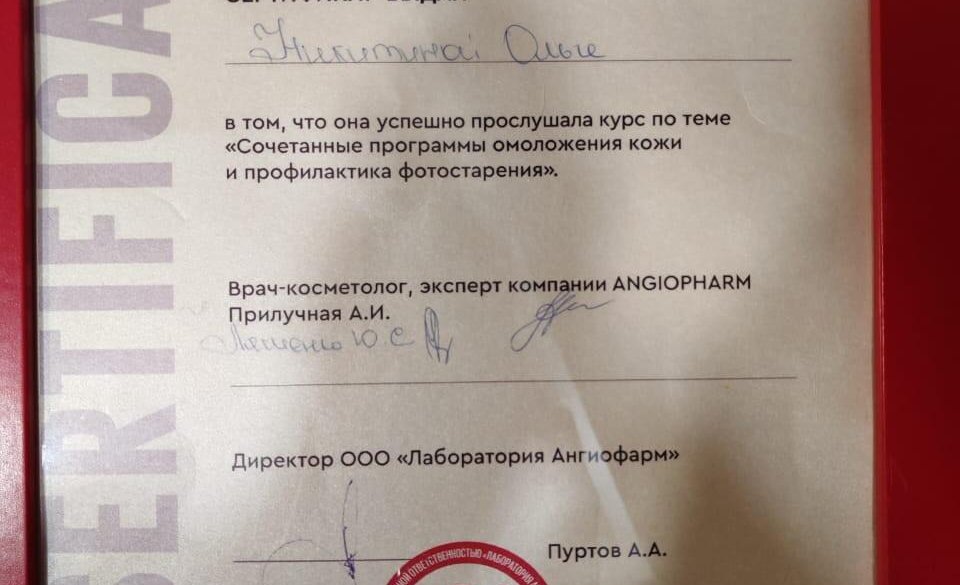 СЕРТИФИКАТ ВЫДАН
Никитиной Ольге
в том, что она успешно прослушала курс по теме
«Сочетанные программы омоложения кожи
и профилактика фотостарения».
Врач-косметолог, эксперт компании ANGIOPHARM
Прилучная А.И.
Ляшенко Ю.С.
Директор ООО «Лаборатория Ангиофарм»
Пуртов А.А.
ОТВЕТСТВЕННОСТЬЮ «ЛАБОРАТОРИЯ
SERTIFICA